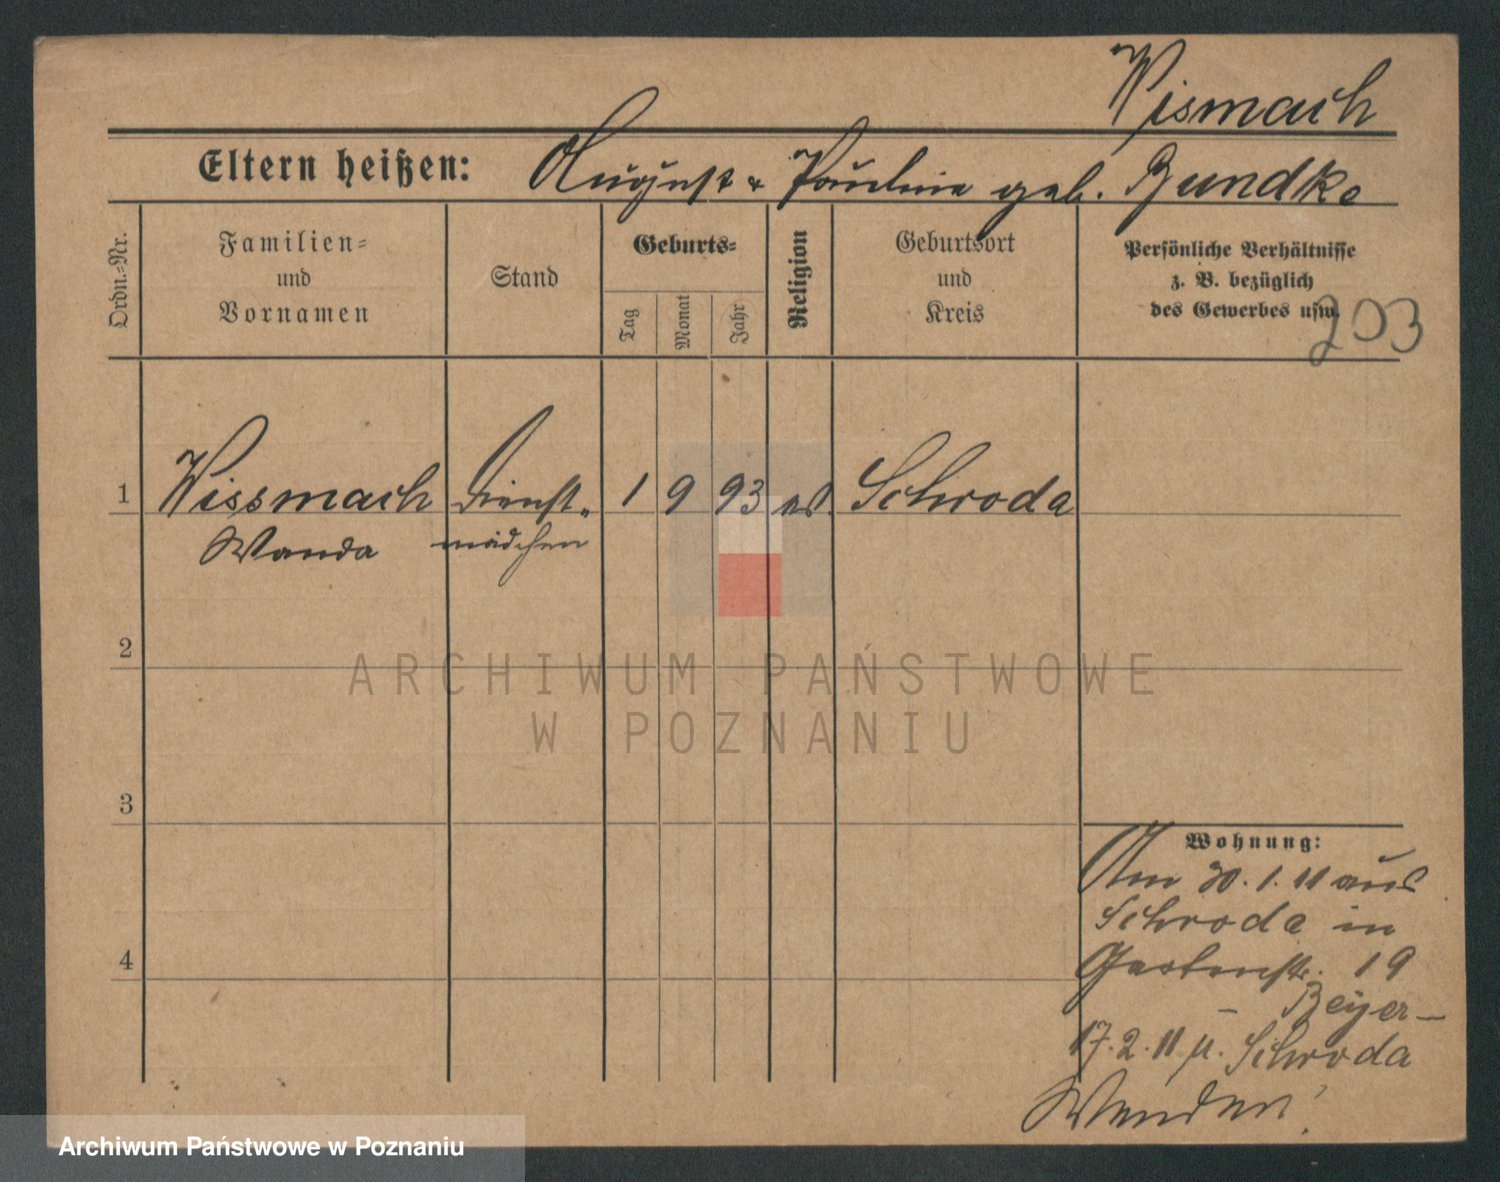 Wismach
Eltern heißen: August & Pauline geb. Bundke
Ordn.-Nr.
Familien-
und
Vornamen
Stand
Geburts-
Tag
Monat
Jahr
Religion
Geburtsort
und
Kreis
Persönliche Verhältnisse
z. B. bezüglich
des Gewerbes usw.
203
1 Wissmach Dienst- 1 9 93 Schroda
Wanda mädchen
2
3
4
Wohnung:
Am 30.1.11 aus
Schroda in
Gartenstr. 19
– Beyer –
17.2.11 n. Schroda
Wenden!
ARCHIWUM PAŃSTWOWE
W POZNANIU
Archiwum Państwowe w Poznaniu